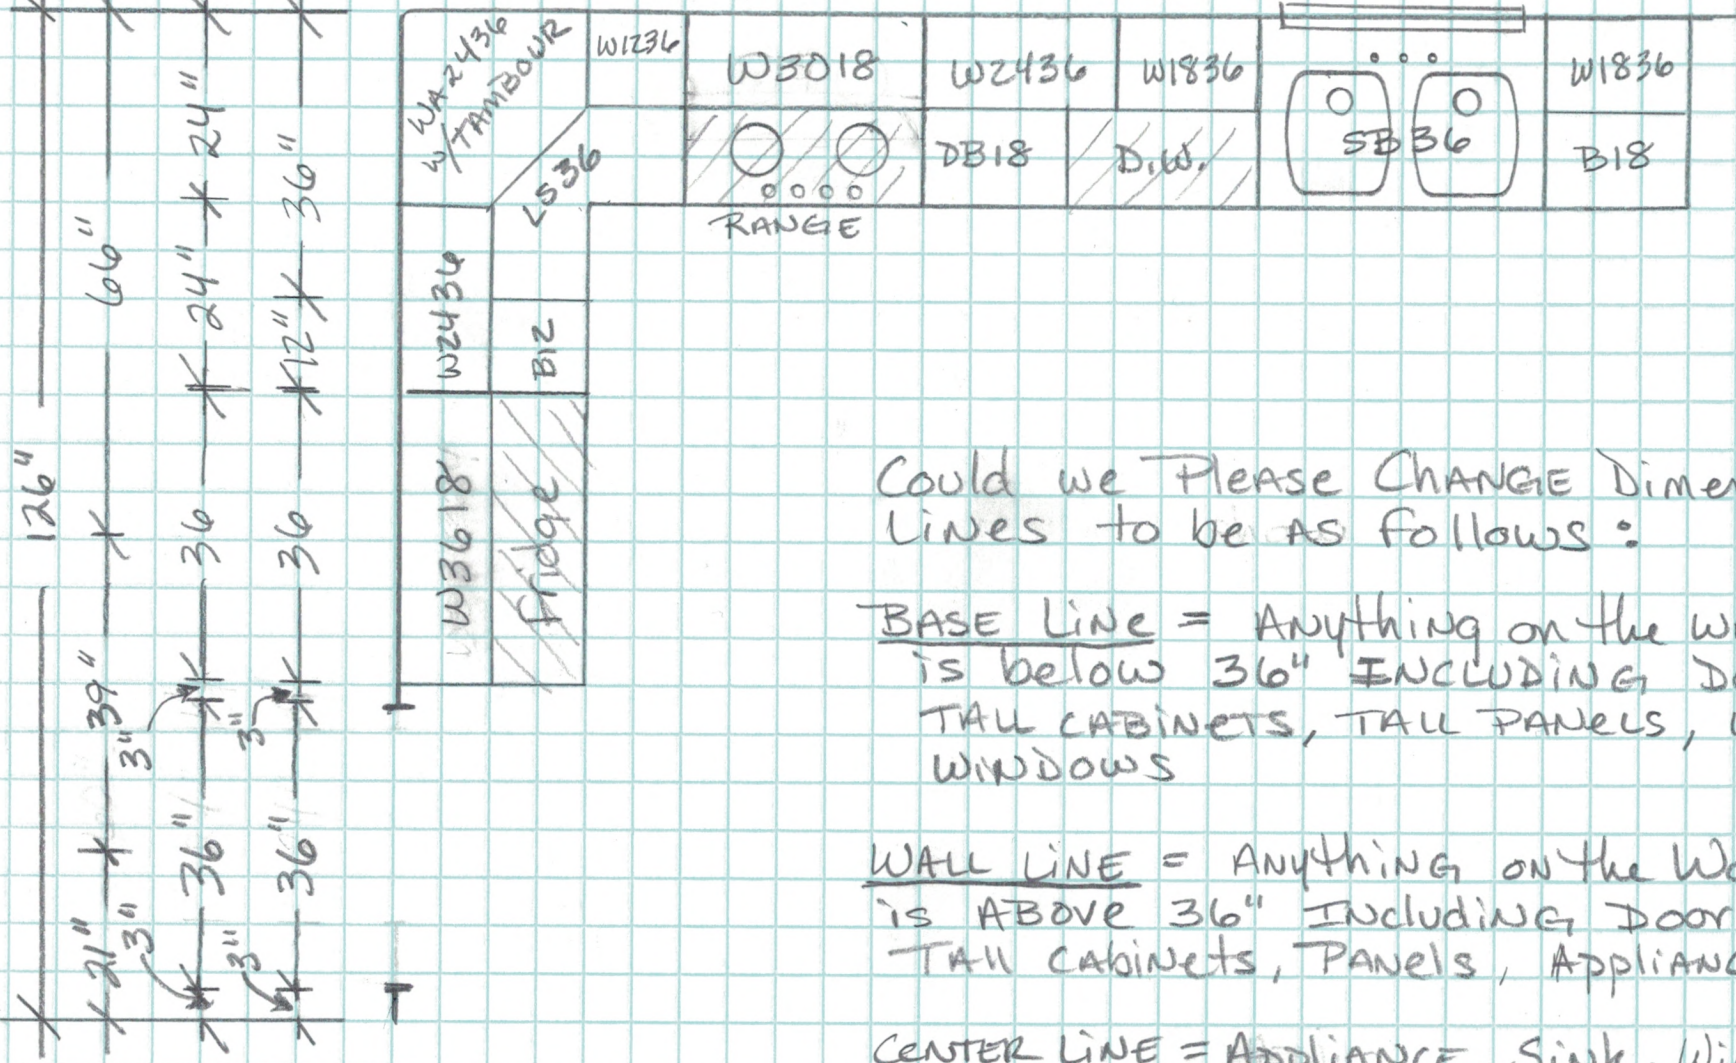 126"
66"
39"
21"
24"
24"
36
3"
36"
3"
36"
12"
36
3"
36"
3"
WA2436
W/TAMBOUR
W1236
W3018
W2436
W1836
W1836
LS36
DB18
D.W.
SB36
B18
RANGE
W2436
B12
W3618
fridge
Could we Please CHANGE
Lines to be AS follows:
BASE LiNe = ANything on the
is below 36" INCLUDiNG
TALL CABiNeTS, TALL PANeLS,
WiNDOWS
WALL LiNE = ANythiNG on the
is ABove 36" INcludiNG DOOR
TAll CAbiNets, PANels,
CENTER LiNe = APPLiANCE, SiNk,